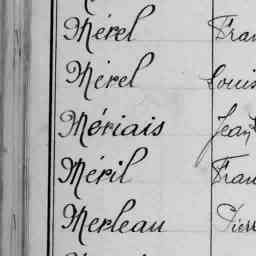 Mérel Fran
Mérel Louis
Mériais Jean
Méril Fran
Merleau Pierr